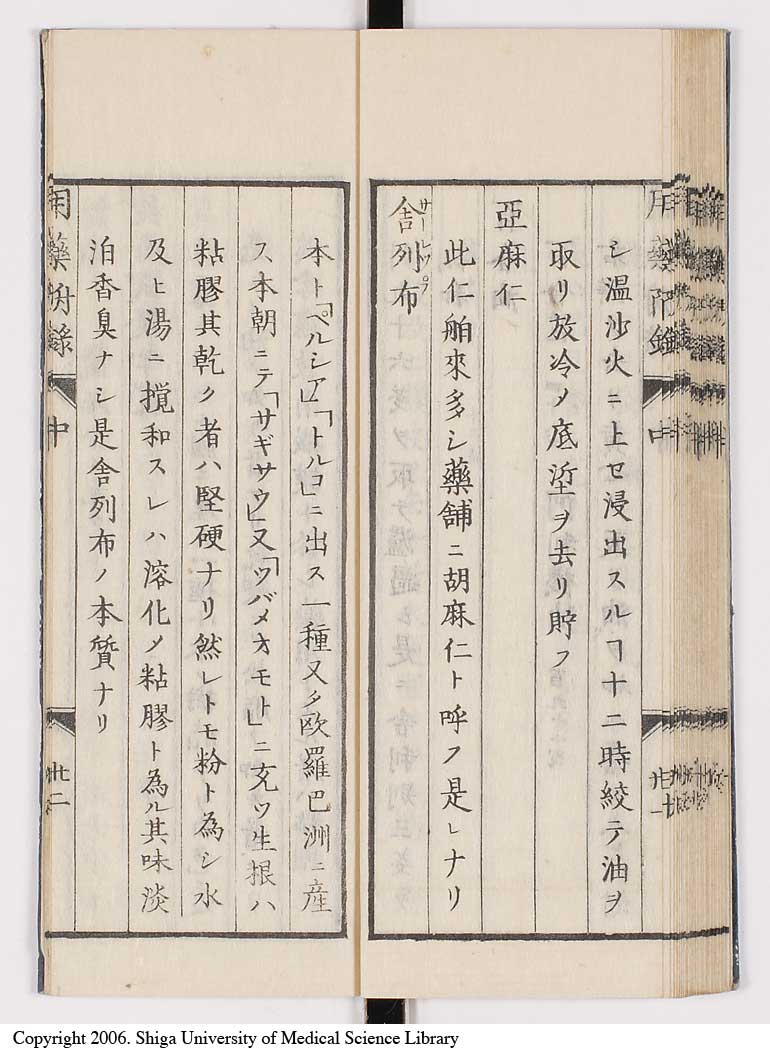 シ温沙火ニ上セ浸出スルヿ十二時絞テ油ヲ
取リ放冷ノ底埿ヲ去リ貯フ
亞麻仁
此仁舶來多シ藥舗ニ胡麻仁ト呼フ是レナリ
舎列布
サーレップ
本ト「ペルシア」「トルコ」ニ出ス一種又タ歐羅巴洲ニ産
ス本朝ニテ「サギサウ」又「ツバメオモト」ニ充ツ生根ハ
粘膠其乾ク者ハ堅硬ナリ然レトモ粉ト為シ水
及ヒ湯ニ攪和スレハ溶化メ粘膠ト為ル其味淡
泊香臭ナシ是舎列布ノ本質ナリ
用藥附録
中
廿二
Copyright 2006. Shiga University of Medical Science Library